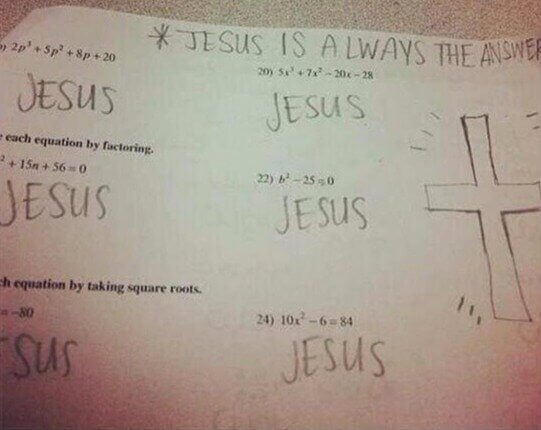 * JESUS IS ALWAYS THE ANSWER
2p³ + 5p² + 8p + 20
20) 5x³ + 7x² - 20x - 28
JESUS
JESUS
each equation by factoring.
² + 15n + 56 = 0
22) b² - 25 = 0
JESUS
JESUS
equation by taking square roots.
= -80
24) 10x² - 6 = 84
JESUS